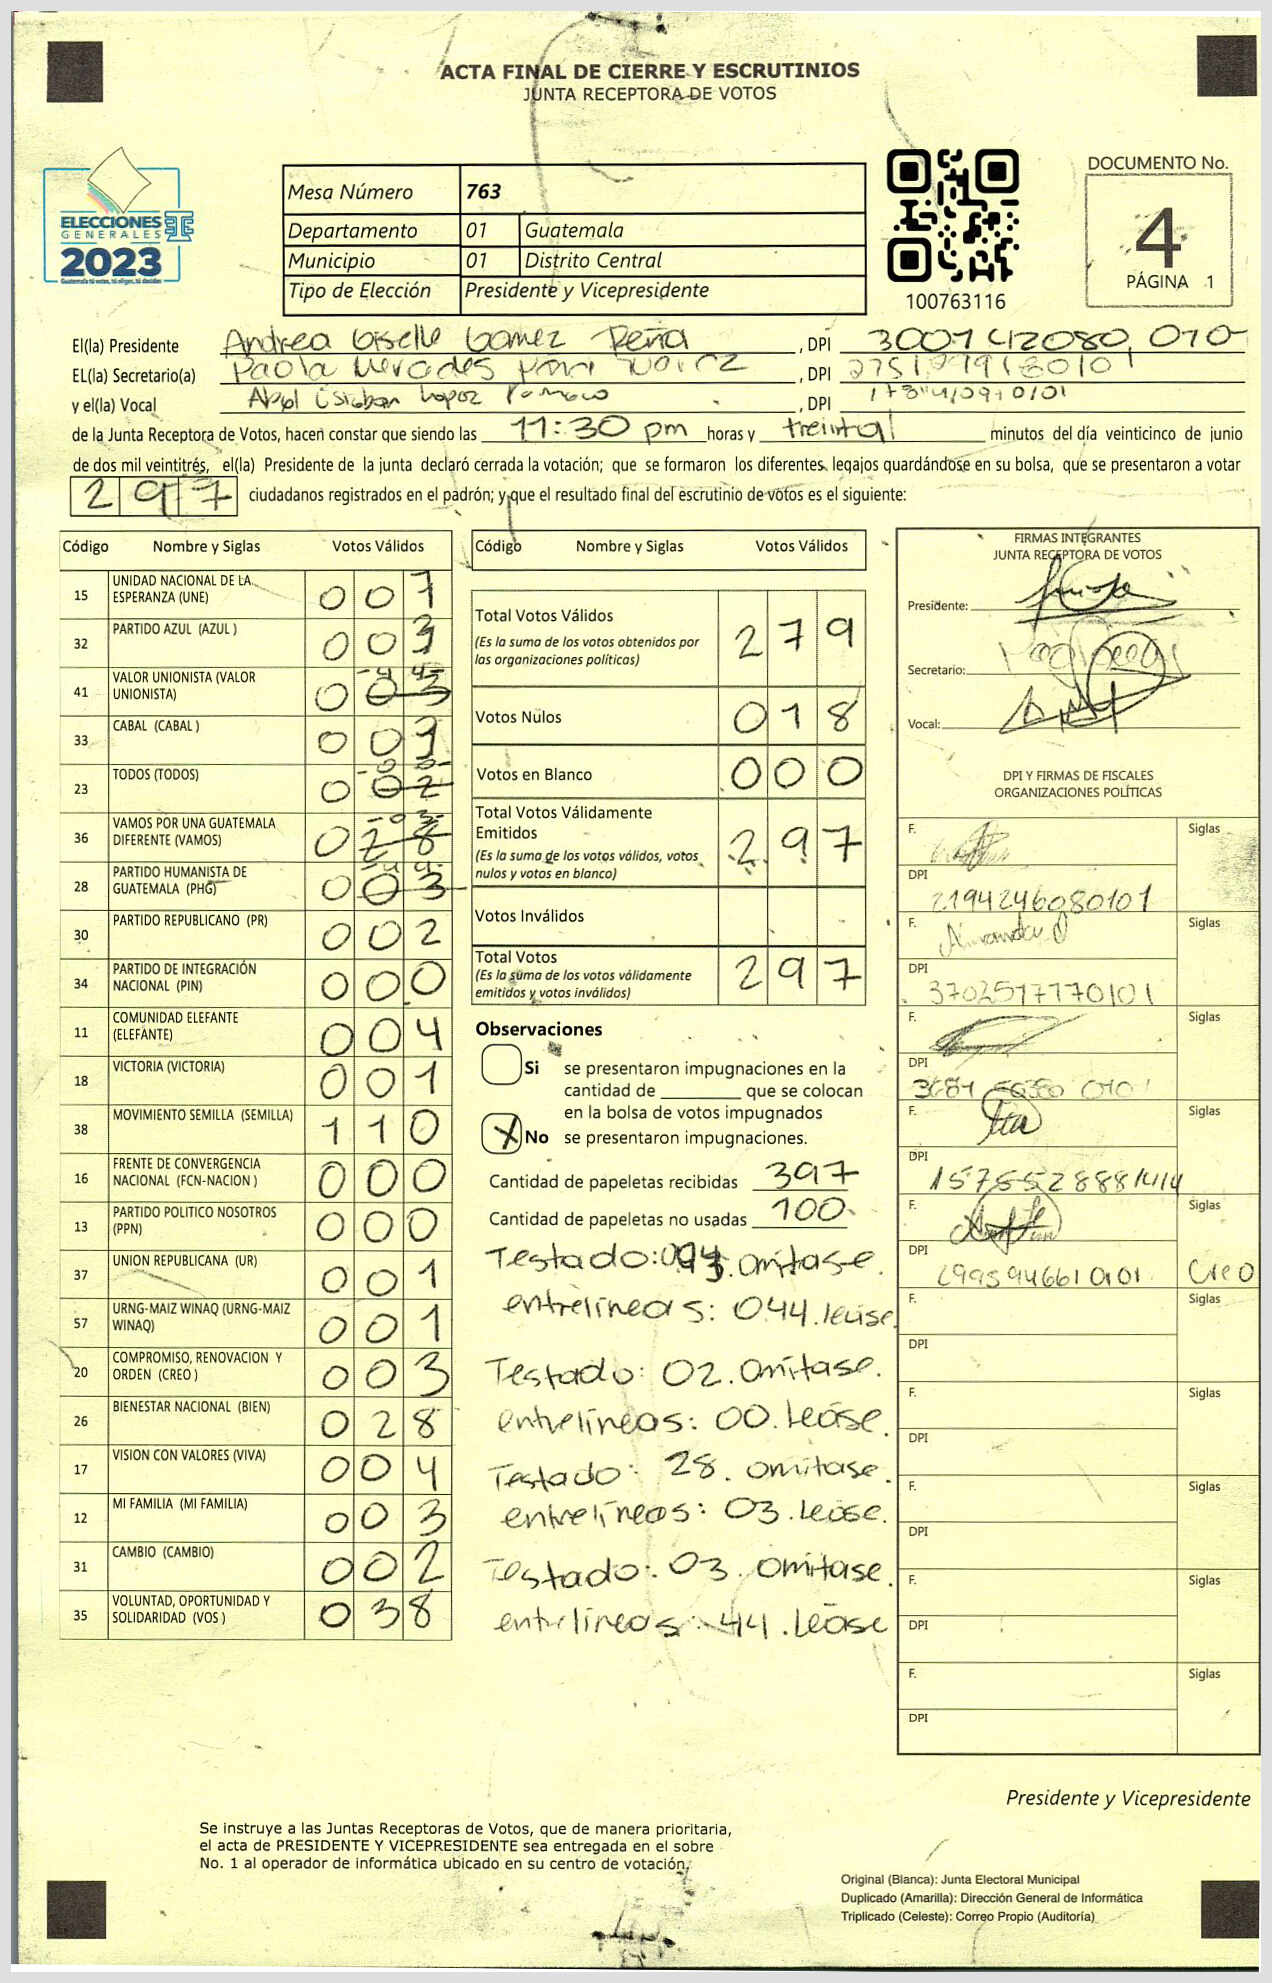 ACTA FINAL DE CIERRE Y ESCRUTINIOS
JUNTA RECEPTORA DE VOTOS
ELECCIONES
GENERALES
2023
Mesa Número 763
Departamento 01 Guatemala
Municipio 01 Distrito Central
Tipo de Elección Presidente y Vicepresidente
100763116
DOCUMENTO No.
4
PÁGINA 1
El(la) Presidente Andrea Giselle Gomez Peña, DPI
EL(la) Secretario(a) Paola, DPI
y el(la) Vocal Esteban Lopez, DPI
de la Junta Receptora de Votos, hacen constar que siendo las 11:30 pm horas y treinta minutos del día veinticinco de junio
de dos mil veintitrés, el(la) Presidente de la junta declaró cerrada la votación; que se formaron los diferentes legajos guardándose en su bolsa, que se presentaron a votar
297 ciudadanos registrados en el padrón; y que el resultado final del escrutinio de votos es el siguiente:
Código Nombre y Siglas Votos Válidos
15 UNIDAD NACIONAL DE LA ESPERANZA (UNE) 007
32 PARTIDO AZUL (AZUL ) 003
41 VALOR UNIONISTA (VALOR UNIONISTA) 003 44
33 CABAL (CABAL ) 00
23 TODOS (TODOS) 002 00
36 VAMOS POR UNA GUATEMALA DIFERENTE (VAMOS) 028 03
28 PARTIDO HUMANISTA DE GUATEMALA (PHG) 003 44
30 PARTIDO REPUBLICANO (PR) 002
34 PARTIDO DE INTEGRACIÓN NACIONAL (PIN) 000
11 COMUNIDAD ELEFANTE (ELEFANTE) 004
18 VICTORIA (VICTORIA) 001
38 MOVIMIENTO SEMILLA (SEMILLA) 110
16 FRENTE DE CONVERGENCIA NACIONAL (FCN-NACION ) 000
13 PARTIDO POLITICO NOSOTROS (PPN) 000
37 UNION REPUBLICANA (UR) 001
57 URNG-MAIZ WINAQ (URNG-MAIZ WINAQ) 001
20 COMPROMISO, RENOVACION Y ORDEN (CREO ) 003
26 BIENESTAR NACIONAL (BIEN) 028
17 VISION CON VALORES (VIVA) 004
12 MI FAMILIA (MI FAMILIA) 003
31 CAMBIO (CAMBIO) 002
35 VOLUNTAD, OPORTUNIDAD Y SOLIDARIDAD (VOS ) 038
Código Nombre y Siglas Votos Válidos
Total Votos Válidos 279
(Es la suma de los votos obtenidos por
las organizaciones políticas)
Votos Nulos 018
Votos en Blanco 000
Total Votos Válidamente
Emitidos 297
(Es la suma de los votos válidos, votos
nulos y votos en blanco)
Votos Inválidos
Total Votos 297
(Es la suma de los votos válidamente
emitidos y votos inválidos)
Observaciones
Si se presentaron impugnaciones en la
cantidad de ________ que se colocan
en la bolsa de votos impugnados
X No se presentaron impugnaciones.
Cantidad de papeletas recibidas 397
Cantidad de papeletas no usadas 100
Testado: omitase.
entrelineas: 044. lease
Testado: 02. Omitase.
entrelineas: 00. Lease.
Testado: 28. omitase.
entrelineas: 03. Lease.
Testado: 03. Omitase.
entrelineas: 44. Lease
FIRMAS INTEGRANTES
JUNTA RECEPTORA DE VOTOS
Presidente:
Secretario:
Vocal:
DPI Y FIRMAS DE FISCALES
ORGANIZACIONES POLÍTICAS
F. Siglas
DPI 2194246080101
F. Siglas
DPI 3702517770101
F. Siglas
DPI
F. Siglas
DPI
F. Siglas
DPI Creo
F. Siglas
DPI
F. Siglas
DPI
F. Siglas
DPI
F. Siglas
DPI
F. Siglas
DPI
Presidente y Vicepresidente
Se instruye a las Juntas Receptoras de Votos, que de manera prioritaria,
el acta de PRESIDENTE Y VICEPRESIDENTE sea entregada en el sobre
No. 1 al operador de informática ubicado en su centro de votación.
Original (Blanca): Junta Electoral Municipal
Duplicado (Amarilla): Dirección General de Informática
Triplicado (Celeste): Correo Propio (Auditoría)